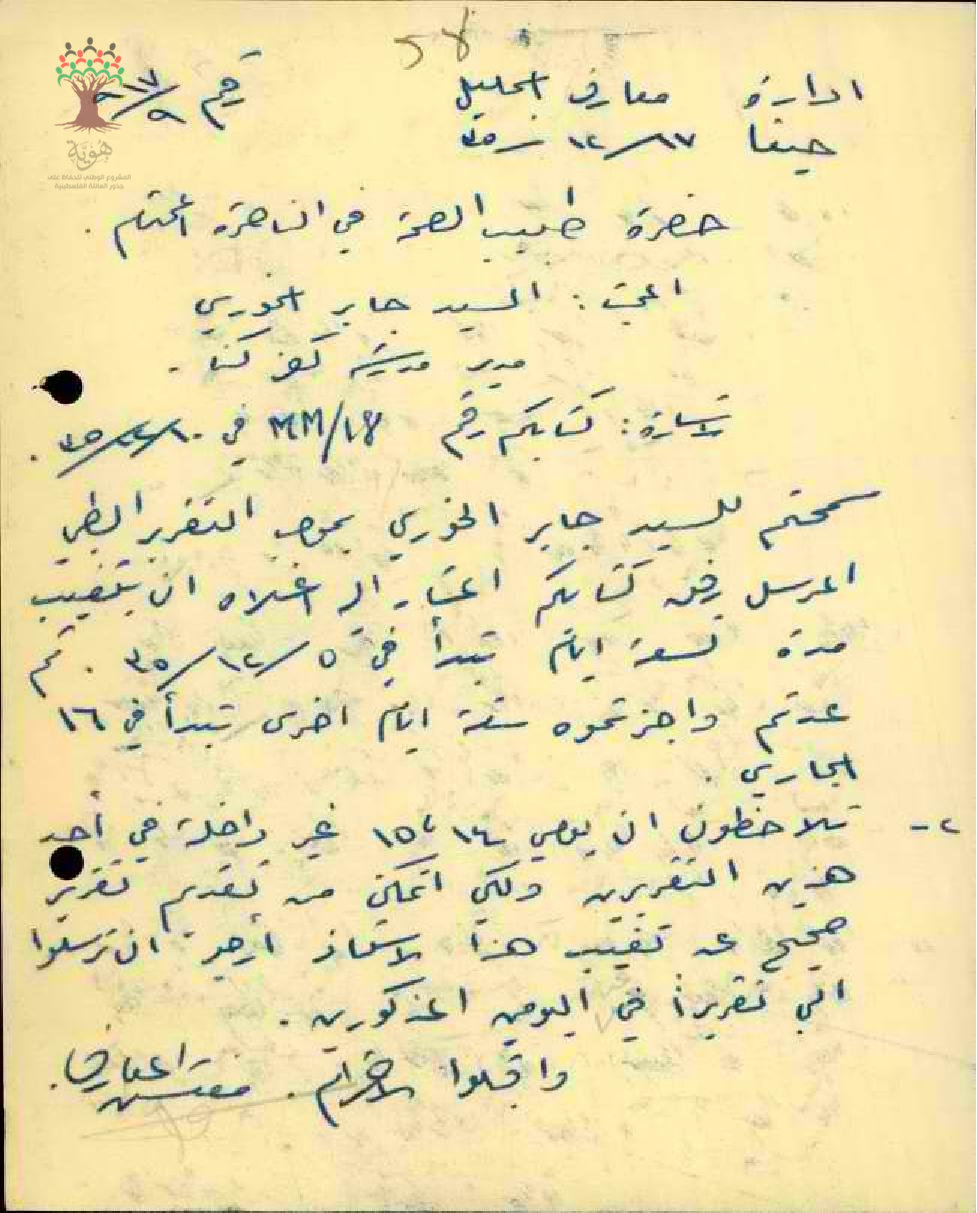 58
ادارة معارف الجليل رقم ١٧/٩
حيفا ١٧/١٢/٣٥
هُوِيَّة
المشروع الوطني للحفاظ على
جذور العائلة الفلسطينية
حضرة طبيب الصحة في الناصرة المحترم .
المبحث : السيد جابر الخوري
مدير مدرسة كفر كنا .
الاشارة : كتابكم رقم MM/18 في ١٠/١٢/٣٥ .
سمحتم للسيد جابر الخوري بموجب التقرير الطبي
المرسل رفق كتابكم المشار اليه اعلاه ان يتغيب
مدة تسعة ايام تبدأ في ٥/١٢/٣٥ . ثم
عدتم واجزتموه ستة ايام اخرى تبدأ في ١٦
الجاري .
٢ - تلاحظون ان يومي ١٤ ، ١٥ غير داخلة في أحد
هذين التقريرين ولكي اتمكن من تقديم تقرير
صحيح عن تغيب هذا الاستاذ أرجو ان ترسلوا
الي تقريراً في اليومين المذكورين .
واقبلوا الاحترام . مفتش المعارف .